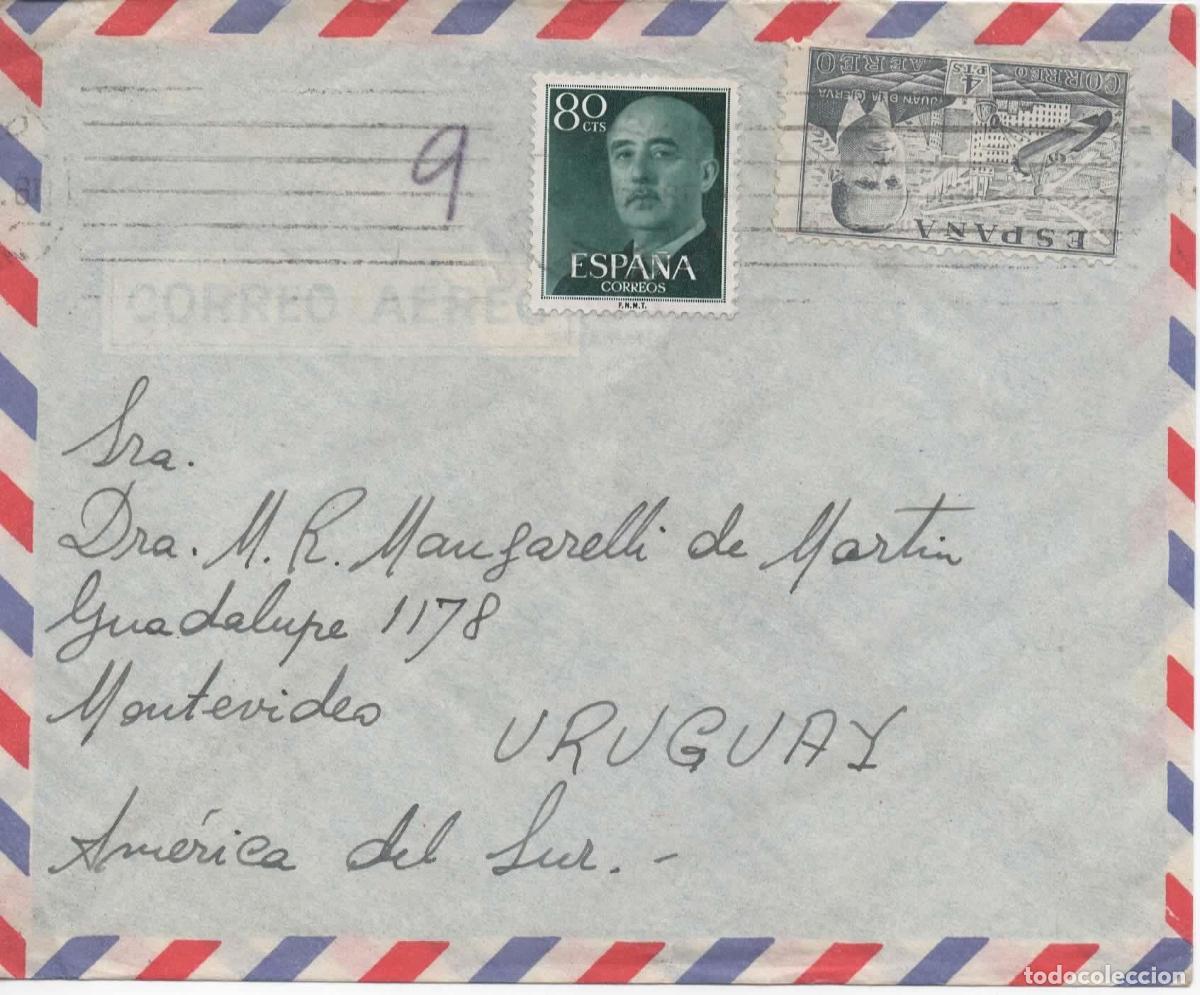 9
80
CTS
ESPAÑA
CORREOS
F.N.M.T.
CORREO AEREO
4
PTS
JUAN DE LA CIERVA
ESPAÑA
CORREO AEREO
Sra.
Dra. M. R. Mangarelli de Martin
Guadalupe 1178
Montevideo
URUGUAY
América del Sur. -
todocoleccion